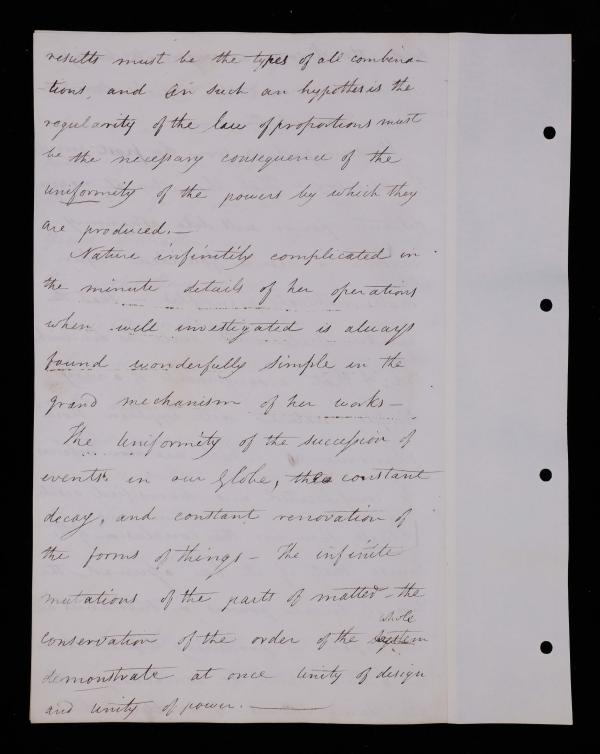 results must be the types of all combina-
tions, and on such an hypothesis the
regularity of the law of proportions must
be the necessary consequence of the
uniformity of the powers by which they
are produced. —
Nature infinitily complicated in
the minute details of her operations
when well investigated is always
found wonderfully simple in the
grand mechanism of her works —
The Uniformity of the succession of
events in our Globe, the constant
decay, and constant renovation of
the forms of things — The infinite
mutations of the parts of matter — the
whole
conservation of the order of the system
demonstrate at once Unity of design
and Unity of power. —